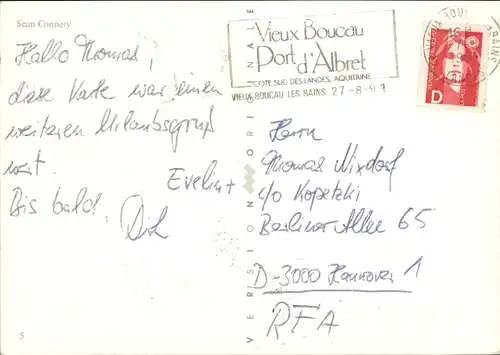 Sean Connery
Hallo Thomas,
diese Karte war einen
weiteren Urlaubsgruß
wert.
Evelin +
Bis bald, Dirk
5
VERSION ORIGINALE
Vieux Boucau
Port d'Albret
COTE SUD DES LANDES, AQUITAINE
VIEUX BOUCAU LES BAINS 27-8-9
D
Herrn
Thomas Nixdorf
c/o Kopetzki
Berliner Allee 65
D-3000 Hannover 1
RFA